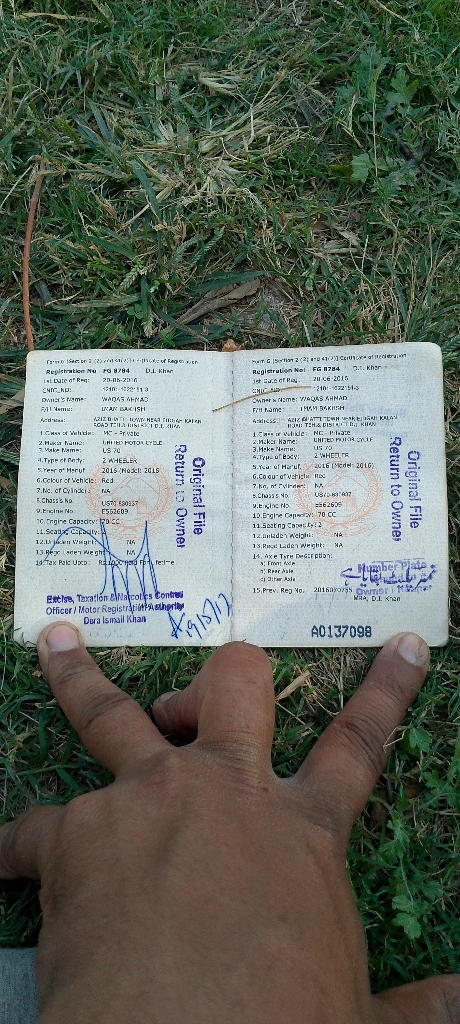 Form G [Section 2 (2) and 41(7)] Certificate of Registration
Registration No FG 8784 D.I. Khan
1st Date of Reg: 20-06-2016
CNIC_NO:
Owner's Name: WAQAS AHMAD
F/H Name: IMAM BAKHSH
Address:
1.Class of Vehicle: MC - Private
2.Maker Name: UNITED MOTOR CYCLE
3.Make Name: US 70
4.Type of Body: 2 WHEELER
5.Year of Manuf. 2016 (Model: 2016)
6.Colour of Vehicle: Red
7.No. of Cylinder: NA
8.Chassis No
9.Engine No. E562609
10.Engine Capacity: 70 CC
11.Seating Capacity: 2
12.Unladen Weight: NA
13.Regd Laden Weight: NA
14.Tax Paid Upto:
Original File
Return to Owner
Excise, Taxation & Narcotics Control
Officer / Motor Registration Authority
Dera Ismail Khan
Form G [Section 2 (2) and 41(7)] Certificate of Registration
Registration No: FG 8784 D.I. Khan
1st Date of Reg: 20-06-2016
CNIC_NO:
Owner's Name: WAQAS AHMAD
F/H Name: IMAM BAKHSH
Address:
1.Class of Vehicle: MC - Private
2.Maker Name: UNITED MOTOR CYCLE
3.Make Name: US 70
4.Type of Body: 2 WHEELER
5.Year of Manuf. 2016 (Model: 2016)
6.Colour of Vehicle: Red
7.No. of Cylinder: NA
8.Chassis No
9.Engine No. E562609
10.Engine Capacity: 70 CC
11.Seating Capacity: 2
12.Unladen Weight: NA
13.Regd Laden Weight: NA
14. Axle Tyre Description:
a) Front Axle
b) Rear Axle
c) Other Axle
15.Prev. Reg No.
MRA, D.I. Khan
Original File
Return to Owner
Number Plate
A0137098